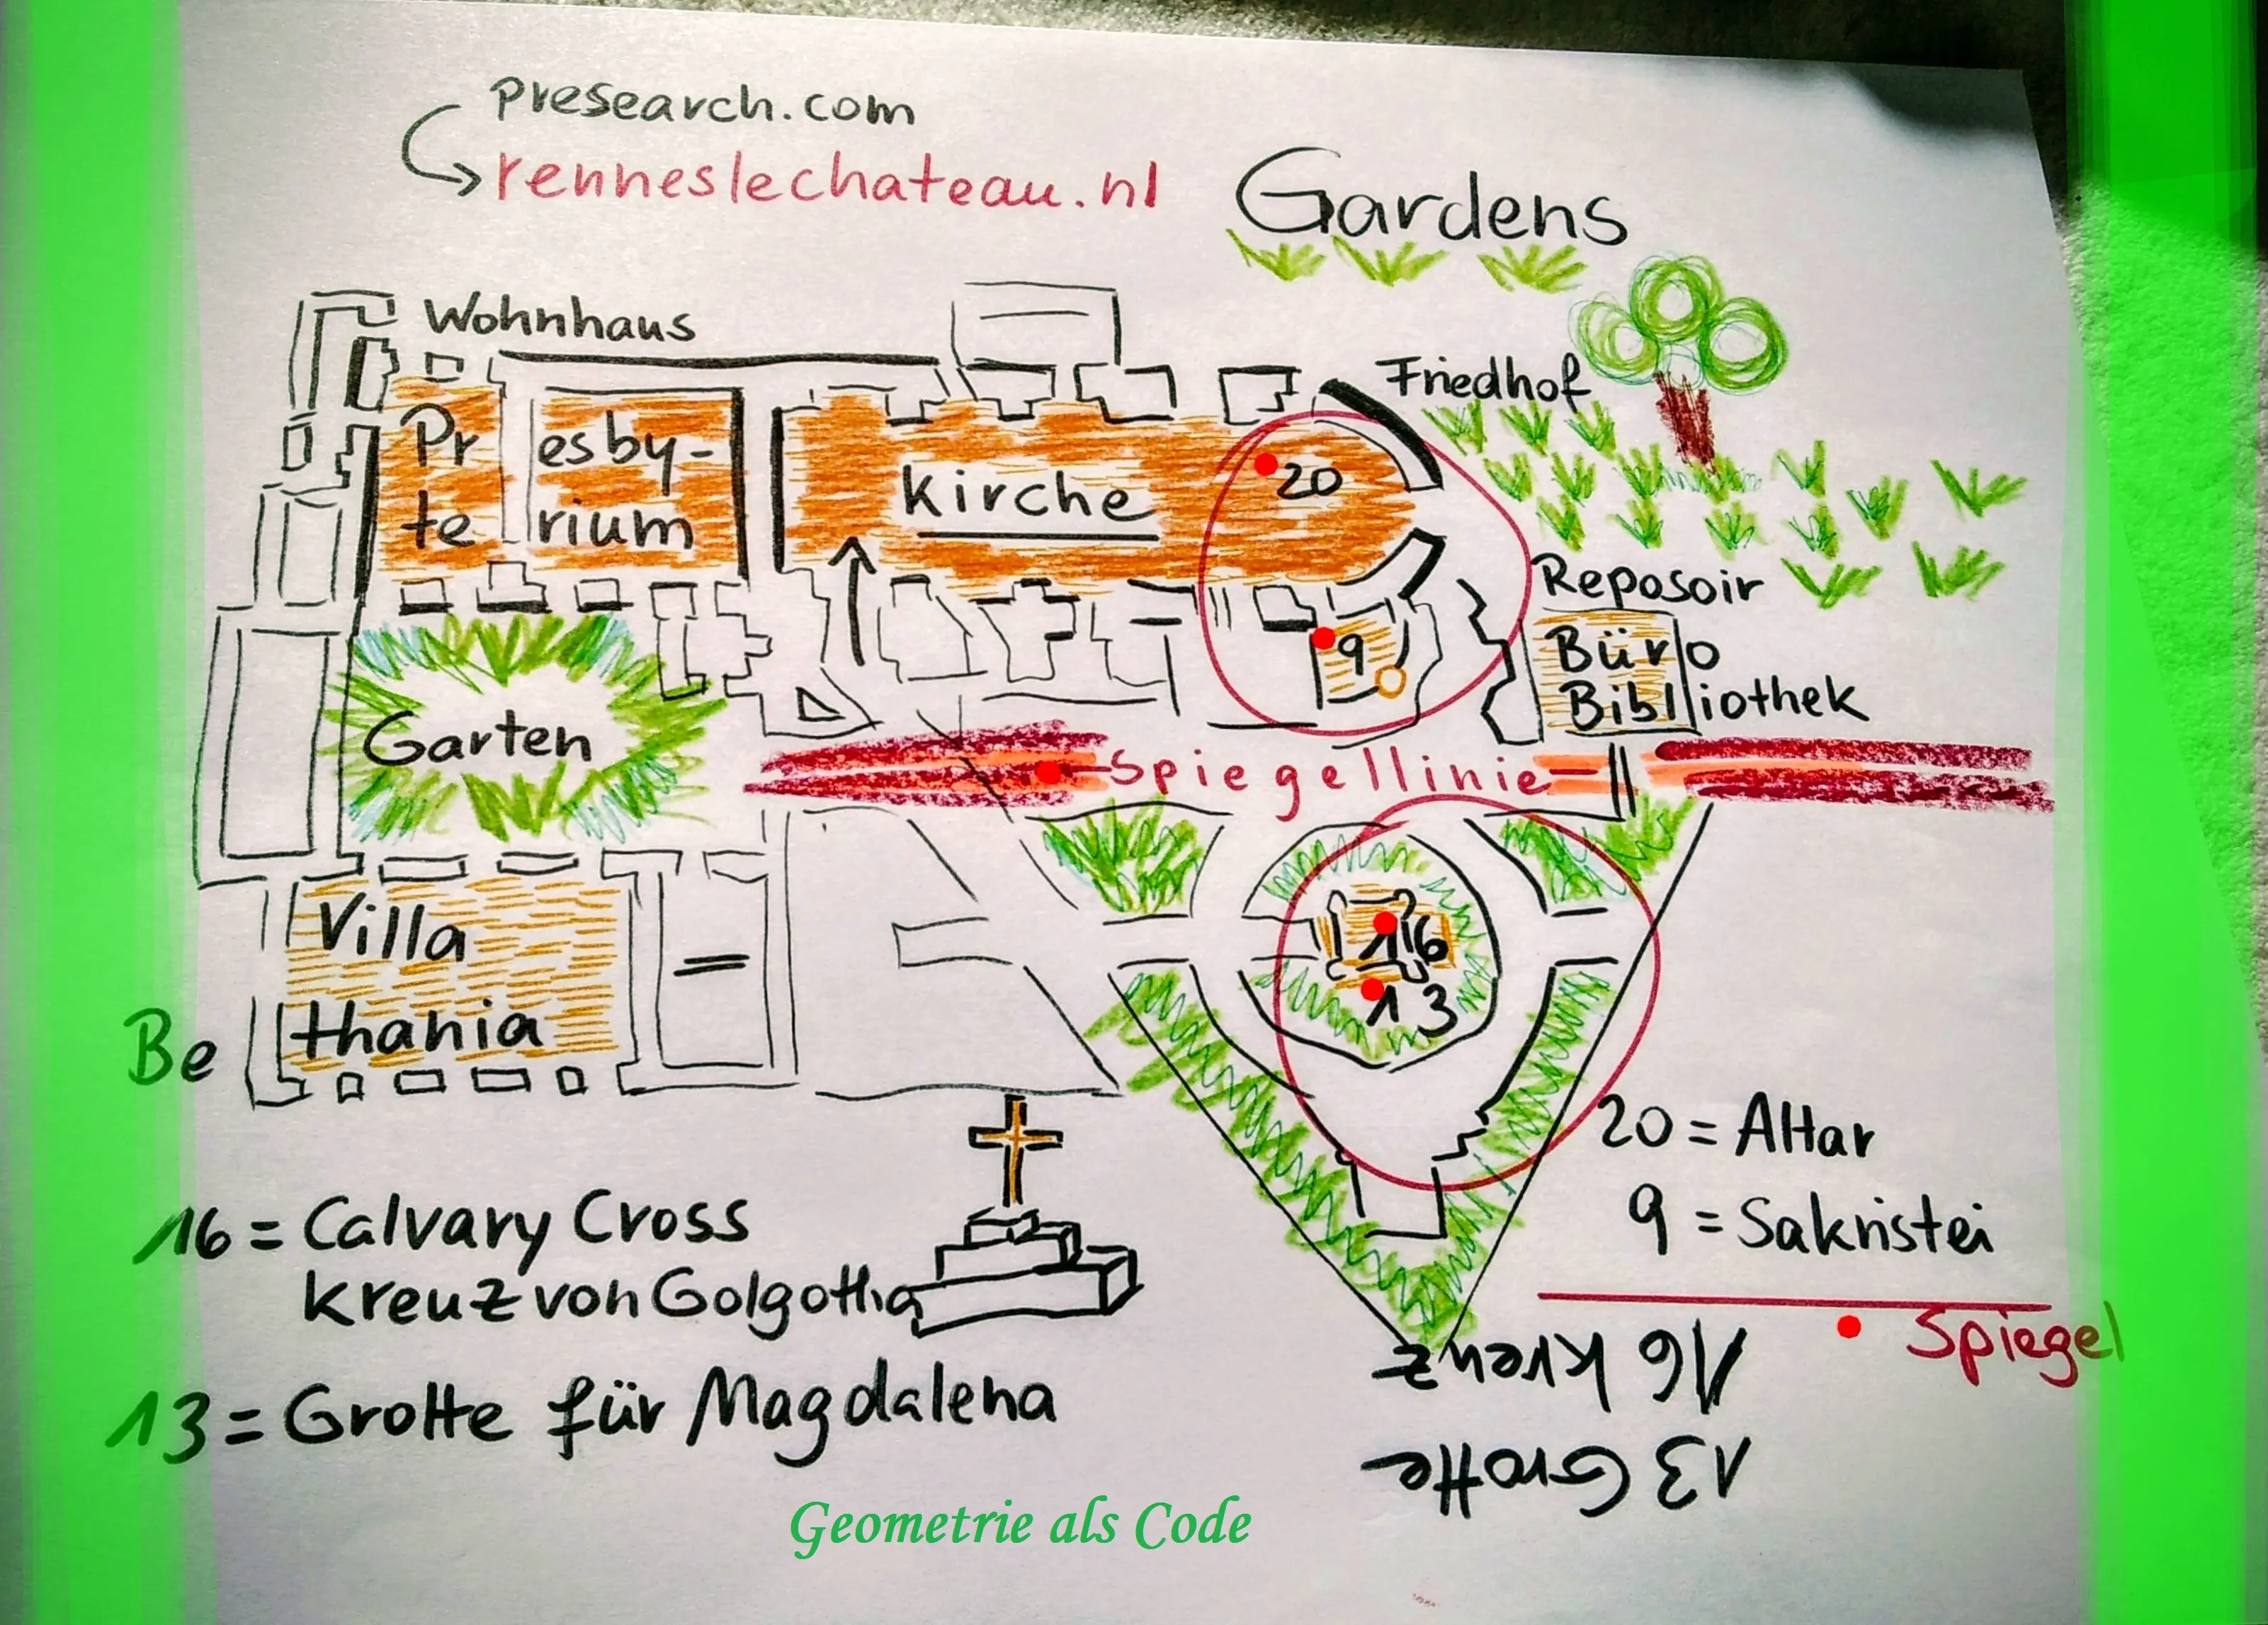 presearch.com
renneslechateau.nl
Gardens
Wohnhaus
Friedhof
Pr esby-
te rium
Kirche
20
Reposoir
9
Büro
Bibliothek
Garten
Spiegellinie
Villa
Bethania
16
13
20 = Altar
9 = Sakristei
Spiegel
16 = Calvary Cross
Kreuz von Golgotha
13 = Grotte für Magdalena
16 Kreuz
13 Grotte
Geometrie als Code